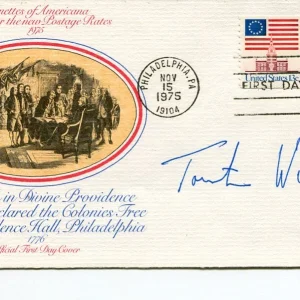 nettes of Americana
r the new Postage Rates
1975
PHILADELPHIA, PA
NOV
15
1975
19104
United States
FIRST DA
in Divine Providence
clared the Colonies Free
dence Hall, Philadelphia
1776
fficial First Day Cover